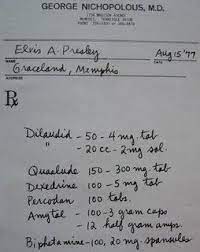 GEORGE NICHOPOLOUS, M.D.
1734 MADISON AVENUE
MEMPHIS, TENNESSEE
Elvis A. Presley Aug 15 '77
NAME
Graceland, Memphis
ADDRESS
Rx
Dilaudid - 50 - 4 mg. tab
" - 20 cc - 2 mg. sol.
Quaalude 150 - 300 mg. tab
Dexedrine 100 - 5 mg tab
Percodan 100 tabs.
Amytal - 100 - 3 gram caps
- 12 half gram amps.
Biphetamine - 100, 20 mg. spansules